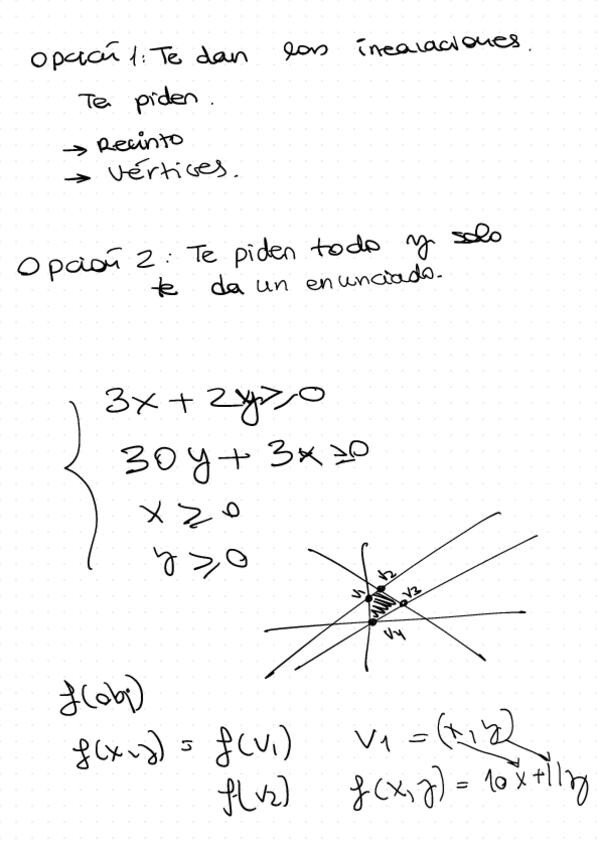 Opción 1: Te dan las inecuaciones.
Te piden.
→ Recinto
→ Vértices.
Opción 2: Te piden todo y solo
te da un enunciado.
3x + 2y ≥ 0
30y + 3x ≥ 0
x ≥ 0
y ≥ 0
V1 V2 V3
V4
f(obj)
f(x,y) = f(V1) V1 = (x,y)
f(V2) f(x,y) = 10x+11y